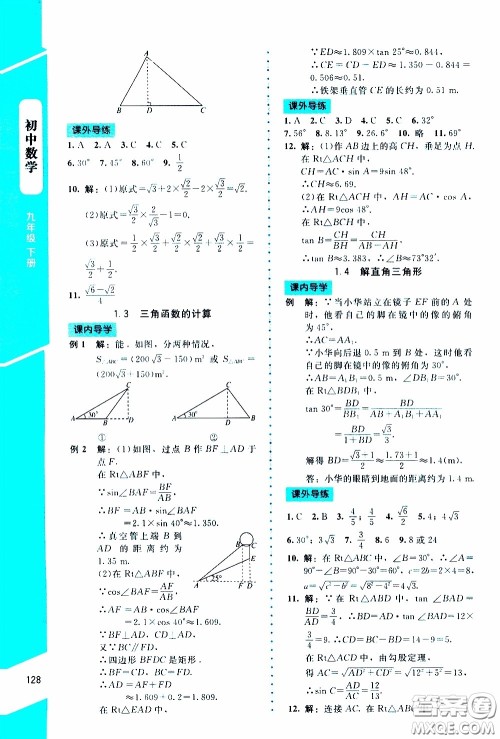 初中数学
九年级 下册
128
A
B
D
C
课外导练
1. A 2. C 3. C 4. C 5. A
6. 30° 7. 45° 8. 60° 9. 1/2
10. 解：(1)原式=√3+2×√2/2-1×√2/2=
√3+√2/2.
(2)原式=√3/2×√3/2-1/2×1/2=1/2.
(3)原式=√3/2×√2/2-√2/2×√3+1=
√3/2+1/2.
11. √6-√2/4
1.3 三角函数的计算
课内导学
例 1 解：能. 如图，分两种情况，
S△ABC=(200√3-150) m² 或 S△ABC=
(200√3+150) m².
A 30° B
C
A 30° B
①
②
例 2 解：(1)如图，过点 B 作 BF⊥AD 于
点 F.
在 Rt△ABF 中，
∵sin∠BAF=BF/AB，
∴BF=AB·sin∠BAF=
2.1×sin 40°≈1.35.
∴真空管上端 B 到
AD 的距离约为
1.35 m.
(2)在 Rt△ABF 中，
∵cos∠BAF=AF/AB，
25°
∴AF=AB·cos∠BAF=
2.1×cos 40°≈1.609.
∵BF⊥AD，CD⊥AD，
又∵BC∥FD，
∴四边形 BFDC 是矩形.
∴BF=CD，BC=FD.
∴AD=AF+FD=AF+BC
≈1.609+0.2=1.809.
∵ED≈1.809×tan 25°≈0.844，
∴CE=CD-ED≈1.35-0.844=
0.506≈0.51.
∴铁架垂直管 CE 的长约为 0.51 m.
课外导练
1. A 2. C 3. D 4. A 5. C 6. 32°
7. 56° 8. 9.1 9. 26.6° 10. 略 11. 68°
12. 解：(1)作 AB 边上的高 CH，垂足为 H.
在 Rt△ACH 中，
CH=AC·sin A=9sin 48°.
∴CH≈6.69.
(2)在 Rt△ACH 中，
AH=9cos 48°.
在 Rt△BCH 中，
tan B=CH/BH=CH/AB-AH
∴∠B≈73°32′.
1.4 解直角三角形
课内导学
例 解：当小华站立在镜子 EF 前的 A 处
时，他看自己的脚在镜中的像的俯角
为 45°，
∴AC=AA₁=1.
∵小华向后退 0.5 m 到 B 处，看自
己的脚在镜中的像的俯角为
30°. ∴BB₁=2，∠DB₁B=30°.
在 Rt△DBB₁ 中，
tan 30°=BD/BB₁=BD/AB+A₁B₁+AA₁=
BD/1+BD=√3/3
解得 BD=√3+1/2≈1.73+1/2≈1.4.
答：小华的眼睛到地面的距离约为 1.4 m.
课外导练
1. C 2. B 3. 4/5 4. √6/2 5. 4/5
6. 30°；3√3 7. 3/4 8. 6 9. 8 或 24
10. 解：在 Rt△ABC 中，∠B=90°-∠A=
90°-30°=60°，c=2b=2×4=8，
a=√c²-b²=√8²-4²=4√3.
11. 解：∵在 Rt△ABD 中，tan∠BAD=
BD/AD=3/4，∴BD=AD·tan∠BAD=
12×3/4=9. ∴CD=BC-BD=14-9=5.
∴在 Rt△ADC 中，由勾股定理，
得 AC=√AD²+CD²=√12²+5²=13.
∴sin C=AD/AC=12/13.
12. 解：连接 AC. 在 Rt△ABC 中，